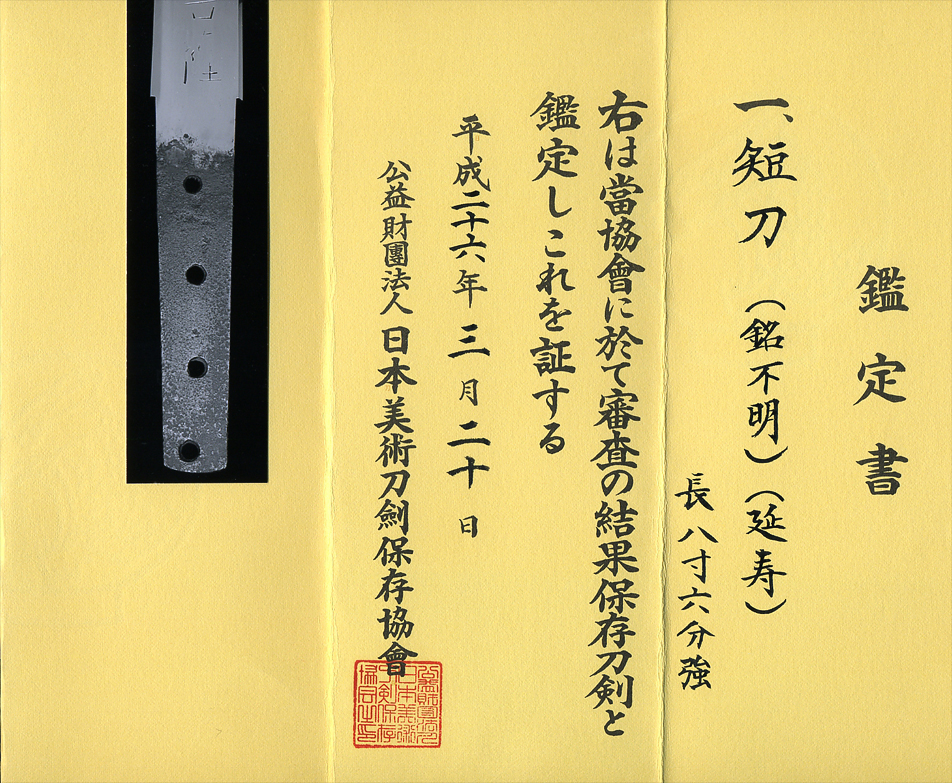 鑑定書
一、短刀（銘不明）（延寿）
長八寸六分強
右は當協會に於て審査の結果保存刀剣と
鑑定しこれを証する
平成二十六年三月二十日
公益財團法人日本美術刀劍保存協會